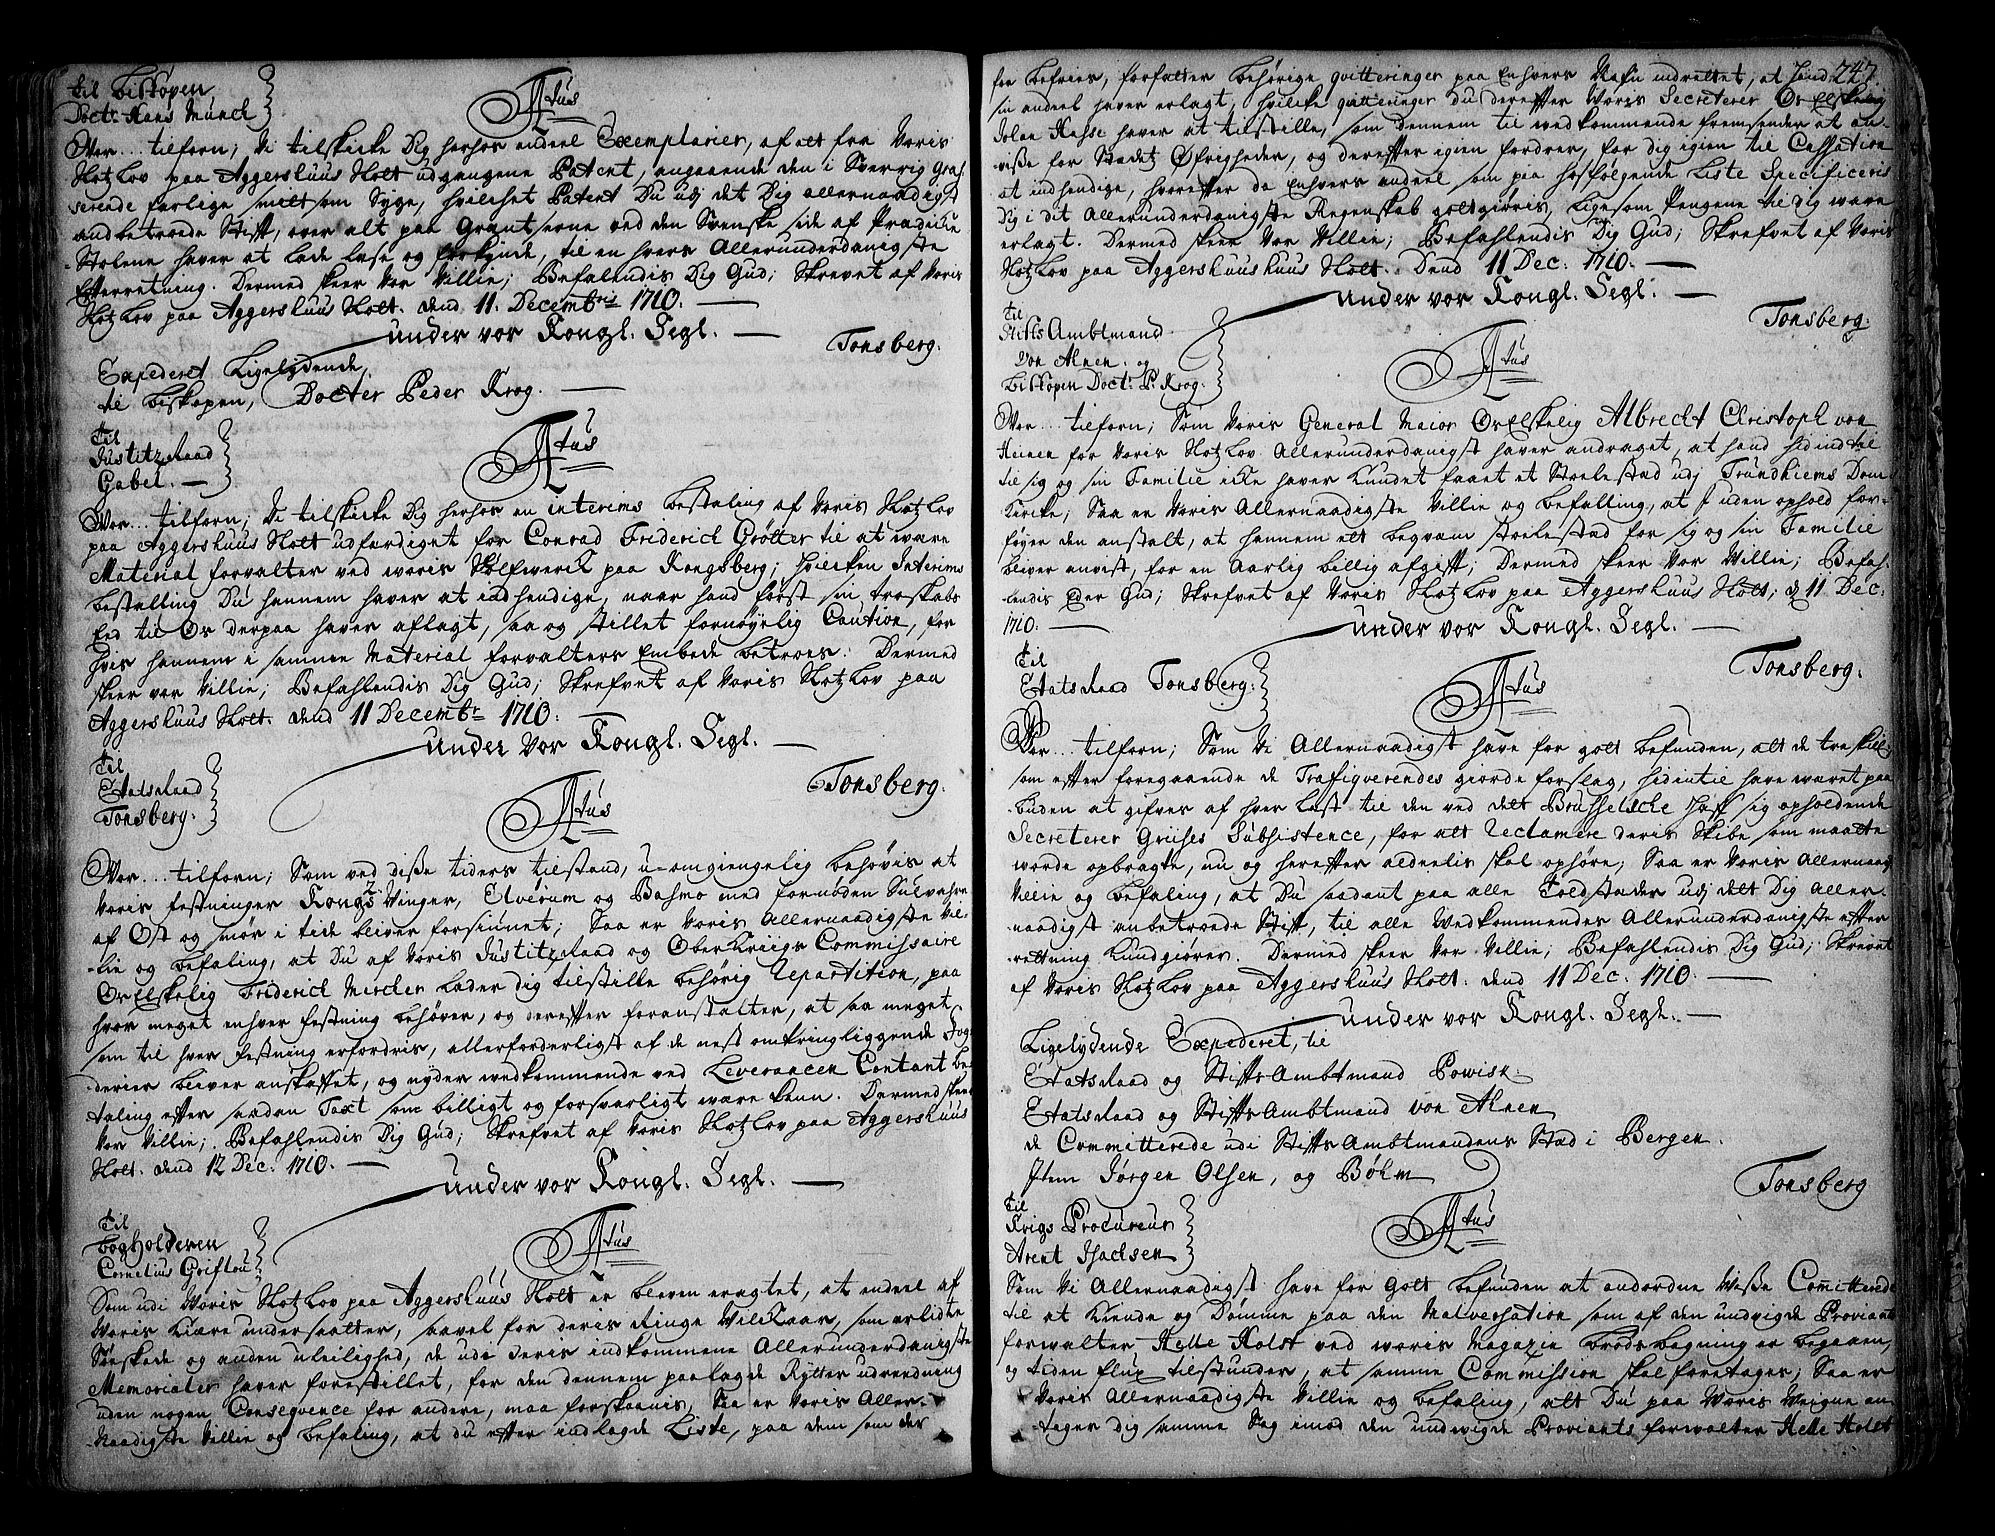 til Biskopen
Doct: Hans Munch
Atus
Vor... tilforn; Vi tilskicke Dig herhos endeel Exemplarier, af alt fra Voris
Slotzlov paa Aggershuus Slott udgangene Patent, angaaende den i Sverrig gras-
serende farlige smitsom Syge, hvilchet Patent Du udj det Dig allernaadigst
andbetroede Stifft, over alt paa Grantserne ved den Svenske side af Prædicke
Stolene haver at lade læse og forkynde, til en hvers Allerunderdanigste
Efterretning. Dermed skeer Vor Villie; Befalendis Dig Gud; Skrevet af Voris
Slotzlov paa Aggershuus Slott. dend 11. Decembris 1710.
under vor Kongl. Segl.
Tonsberg.
Expederet Ligelydende
til Biskopen, Docter Peder Krog.
Til
Justitz Raad
Gabel.
Atus
Vor... tilforn; Vi tilskicke Dig herhos en interims bestaling af Voris Slotzlov
paa Aggershuus Slott udfærdiget for Conrad Friderich Grötter til at være
Material forvalter ved woris Sölfwerck paa Kongsberg; hvilcken Interims
bestalling Du hannem haver at indhendige, naar hand först sin troskabs
Eed til Os derpaa haver aflagt, saa og stillet fornöyelig Caution, for
hvis hannem i sammen Material forvalters Embede betroes. Dermed
skeer vor Villie; Befahlendis Dig Gud; Skrefvet af Voris Slotzlov paa
Aggershuus Slott. dend 11 Decembr 1710.
under vor Kongl. Segl.
Tonsberg.
Til
Etatsraad
Tonsberg.
Atus
Vor... tilforn; Som ved disse tiders tilstand, u-omgiengelig behövis at
Voris festninger Kongs Vinger, Elverum og Basmo med fornöden
af Ost og smör i tide bliver forsiunet; Saa er Voris Allernaadigste Vil-
lie og befaling, at Du af Voris Justitz Raad og Ober Kriigs Commissaire
Os Elskelig Friderich Mercker lader dig tilstille behörig Repartition, paa
hvor meget enhver festning behöver, og derefter foranstalter, at saa meget
som til hver festning erfordris, allerforderligst af de nest omkringliggende Fog-
derier bliver anskaffet, og nyder wedkommende ved Leverancen Contant be-
taling efter saadan Taxt som billigt og forsvarligt være kan. Dermed skeer
Vor Villie; Befahlendis Dig Gud; Skrefvet af Voris Slotzlov paa Aggershuus
Slott. dend 12 Dec. 1710.
under vor Kongl. Segl.
Til
Bogholderen
Cornelius
Atus
Som udi Voris Slotzlov paa Aggershuus Slott er bleven eragtet, at endeel af
Voris kiære undersaatter, saavel for deris ringe Wilckaar, som erlidte
Söeskade og anden uleilighed, de udi deris indkommene Allerunderdanigste
Memorialer haver forestillet, for den dennem paalagde Rytter udredning
uden nogen Conseqvence for andere, maa forskaanis, Saa er Voris Aller-
naadigste Villie og befaling, at du efter indlagde Liste, paa dem som der
247.
for befries, forfatter behörige qvitteringer paa Enhvers Nafn indrettet, at hand
sin andeel haver erlagt, hvilcke qvitteringer du derefter Woris Secreterer Os Elskelig
Johan Hasse haver at tilstille, som dennem til wedkommende fremsender at an-
viisse for Stedets Öfrigheder, og derefter igien fordrer, for dig igien til Cassation
at indhendige, hvorefter da Enhvers andeel som paa hosfölgende Liste Specificeris
Dig i dit Allerunderdanigste Regenskab godtgiöris, ligesom Pengene til dig ware
erlagt. Dermed skeer Vor Villie; Befahlendis Dig Gud; Skrefvet af Voris
Slotzlov paa Aggershuus Slott. Dend 11 Dec. 1710.
under vor Kongl. Segl.
Tonsberg.
Til
Stifts Ambtmand
von Ahnen og
Biskopen Doct: P. Krog.
Atus
Vor... tilforn; Som Voris General Maior Os Elskelig Albrecht Christoph von
Heinen for Voris Slotzlov Allerunderdanigst haver andraget, at hand hid indtil
til sig og sin Familie icke haver kundet faaet et Stoelestad udj Trundhiems Dom
Kircke; Saa er Voris Allernaadigste Villie og befalling, at I uden ophold for-
föyer den anstalt, at hannem ett beqvem stoelestad for sig og sin Familie
bliver anvist, for en Aarlig billig afgift; Dermed skeer Vor Villie; Befah-
lendis Eder Gud; Skrefvet af Voris Slotzlov paa Aggershuus Slott; d 11 Dec:
1710.
under vor Kongl. Segl.
Tonsberg.
Til
Etatsraad Tonsberg.
Atus
Vor... tilforn; Som Vi Allernaadigst have for gott befunden, att de tre skill:
som efter foregaaende de Trafiqverendes giorde forslag, hidintil have wæret paa
buden at gifves af hver læst til den ved det Brusselsche Hoff sig opholdende
Secreterer Griises Subsistence, for att Reclamere deris Skibe som maatte
worde opbragte, nu og herefter aldeelis skal ophöre; Saa er Voris Allernaadg
Villie og befaling, at Du saadant paa alle Toldstæder udj det Dig Aller-
naadigst anbetroede Stift, til alle Wedkommendes Allerunderdanigste efter
retning kundgiörer. Dermed skeer Vor Villie; Befahlendis Dig Gud; Skrevet
af Voris Slotzlov paa Aggershuus Slott. dend 11 Dec: 1710.
under vor Kongl. Segl.
Ligelydende Expederet, til
Etatsraad og Stifts Ambtmand Powisk.
Etatsraad og Stifts Ambtmand von Ahnen
de Committerede udi Stifts Ambtmandens Sted i Bergen.
Item Jörgen Olsen, og Böhm
Tonsberg
Til
Krigs Procureur
Arent Isachsen
Atus
Som Vi Allernaadigst have for Gott befunden at andordne Wisse Committerede
til at kiende og Dömme paa den Malversation som af den undvigde Proviant
forwalter Helle Holst ved woris Magazin brödsbagning er begaaen,
og tiden flux tilstunder, at samme Commission skal foretages; Saa er
Voris Allernaadigste Villie og befaling, att Du paa Woris Weigne an-
tager dig samme Sag imod den undwigde Proviants forwalter Helle Holst